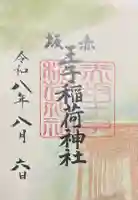 赤坂
王子稲荷神社
令和八年八月六日